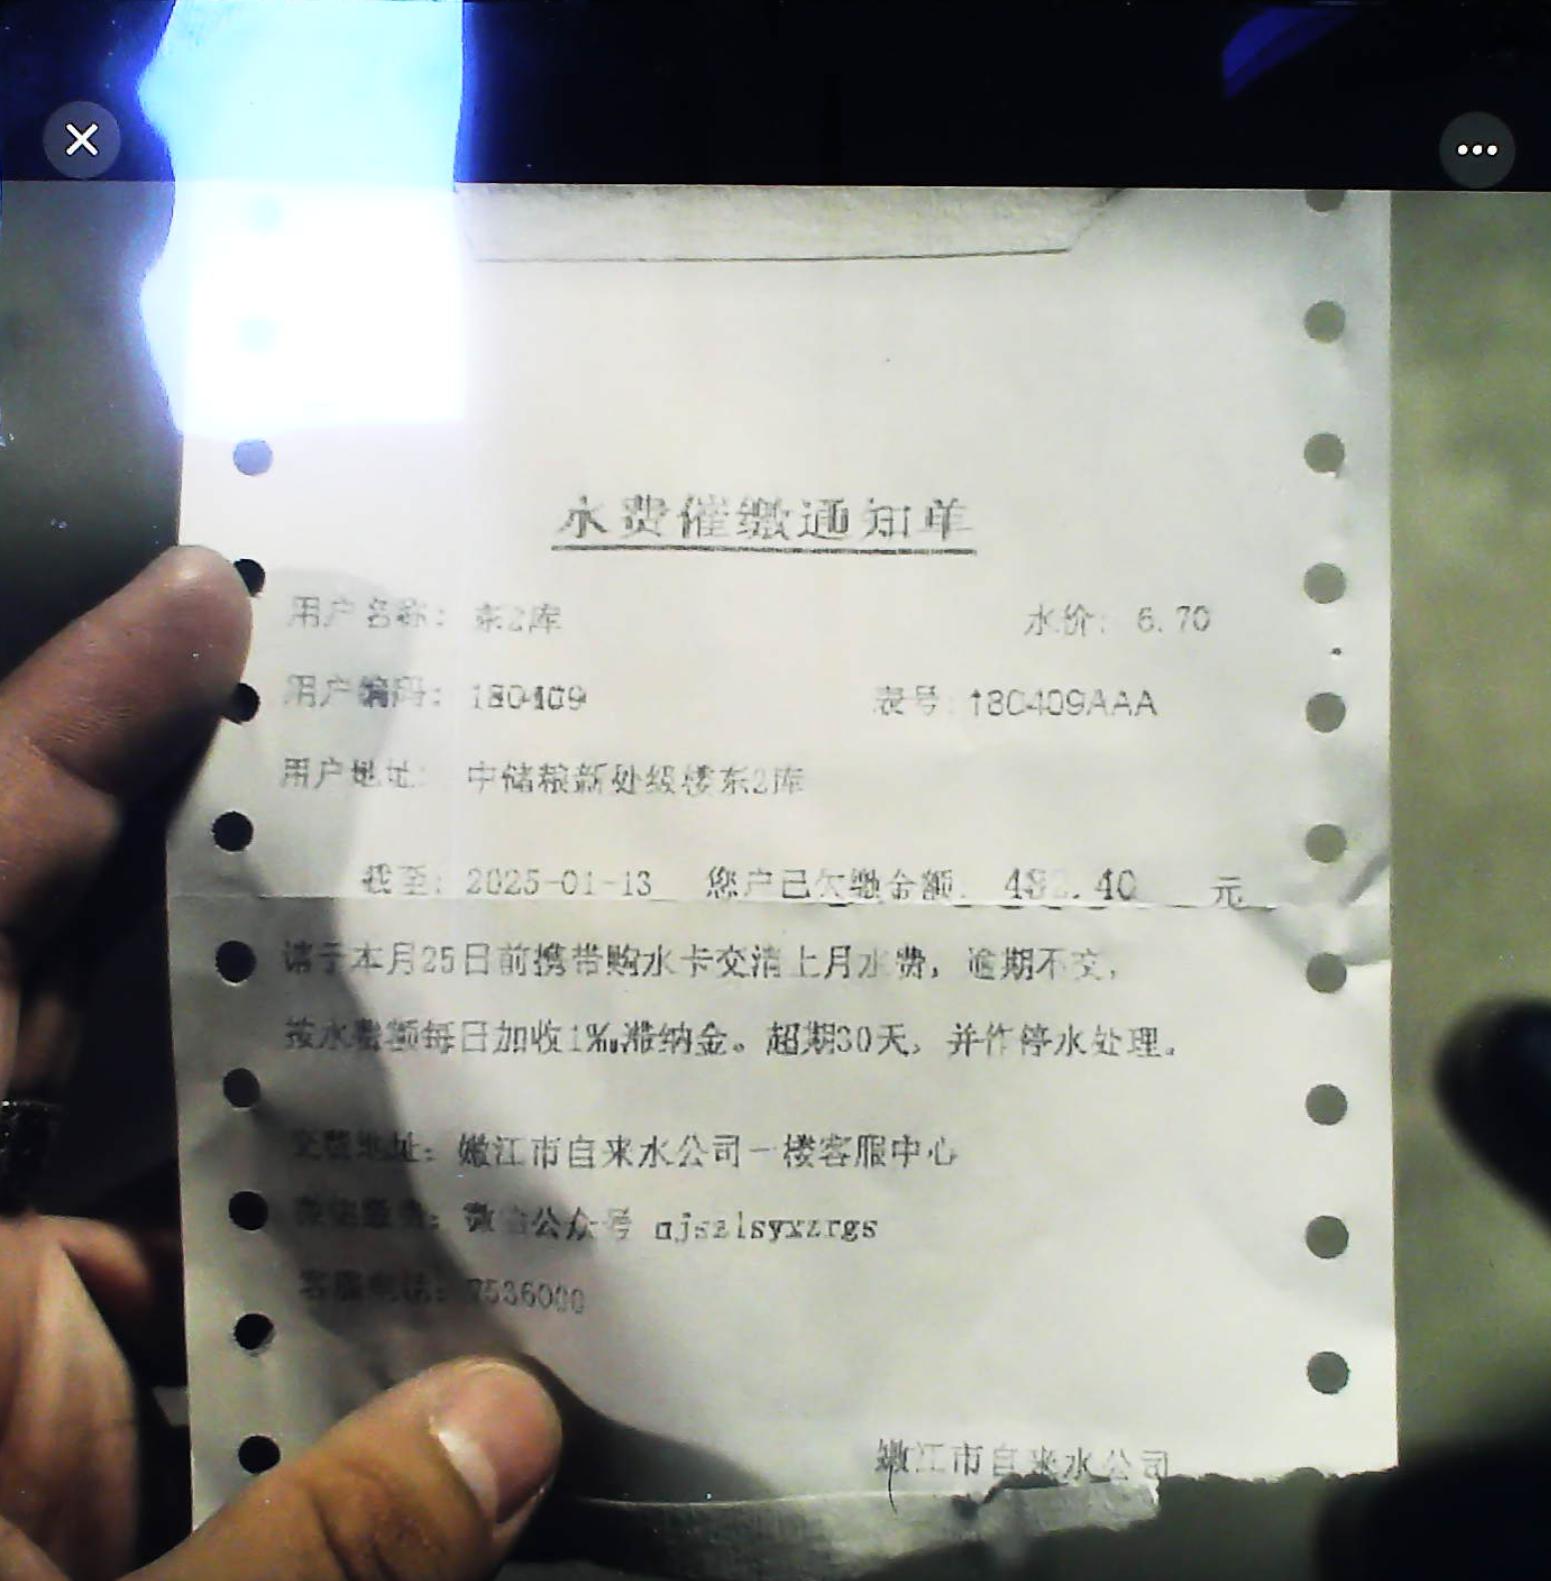 水费催缴通知单
用户名称: 东2库 水价: 6.70
用户编码: 180409 表号:180409AAA
用户地址: 中储粮新处级楼东2库
截至: 2025-01-13 您户已欠缴金额: 元
请于本月25日前携带购水卡交清上月水费，逾期不交，
按水费额每日加收1‰滞纳金。超期30天，并作停水处理。
交费地址: 嫩江市自来水公司一楼客服中心
微信缴费: 微信公众号 njszlsyxzrgs
客服电话: 7536000
嫩江市自来水公司